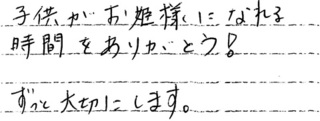 子供がお姫様になれる
時間をありがとう!
ずっと大切にします。